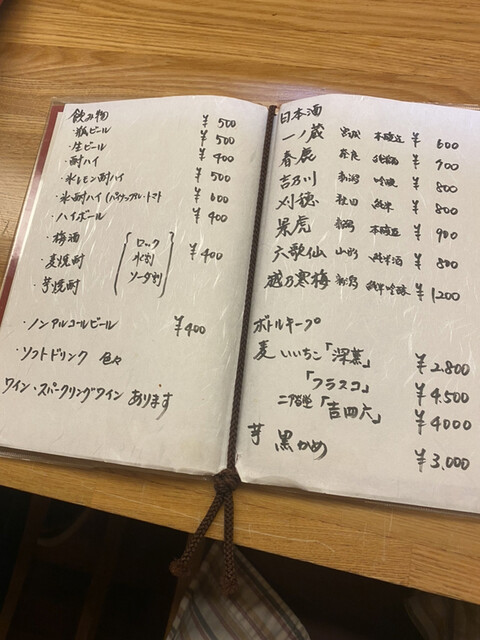 飲み物
・瓶ビール ¥500
・生ビール ¥500
・酎ハイ ¥400
・氷レモン酎ハイ ¥500
・氷酎ハイ(パイナップル・トマト ¥600
・ハイボール ¥400
・梅酒
・麦焼酎
・芋焼酎
ロック
水割
ソーダ割
¥400
・ノンアルコールビール ¥400
・ソフトドリンク 色々
ワイン・スパークリングワイン あります
日本酒
一ノ蔵 宮城 本醸造 ¥600
春鹿 奈良 純米 ¥900
吉乃川 新潟 吟醸 ¥800
刈穂 秋田 純米 ¥800
景虎 新潟 本醸造 ¥900
六歌仙 山形 純米酒 ¥800
越乃寒梅 新潟 純米吟醸 ¥1200
ボトルキープ
麦 いいちこ「深蒸」 ¥2.800
「フラスコ」 ¥4.500
二階堂「吉四六」 ¥4000
芋 黒かめ ¥3.000